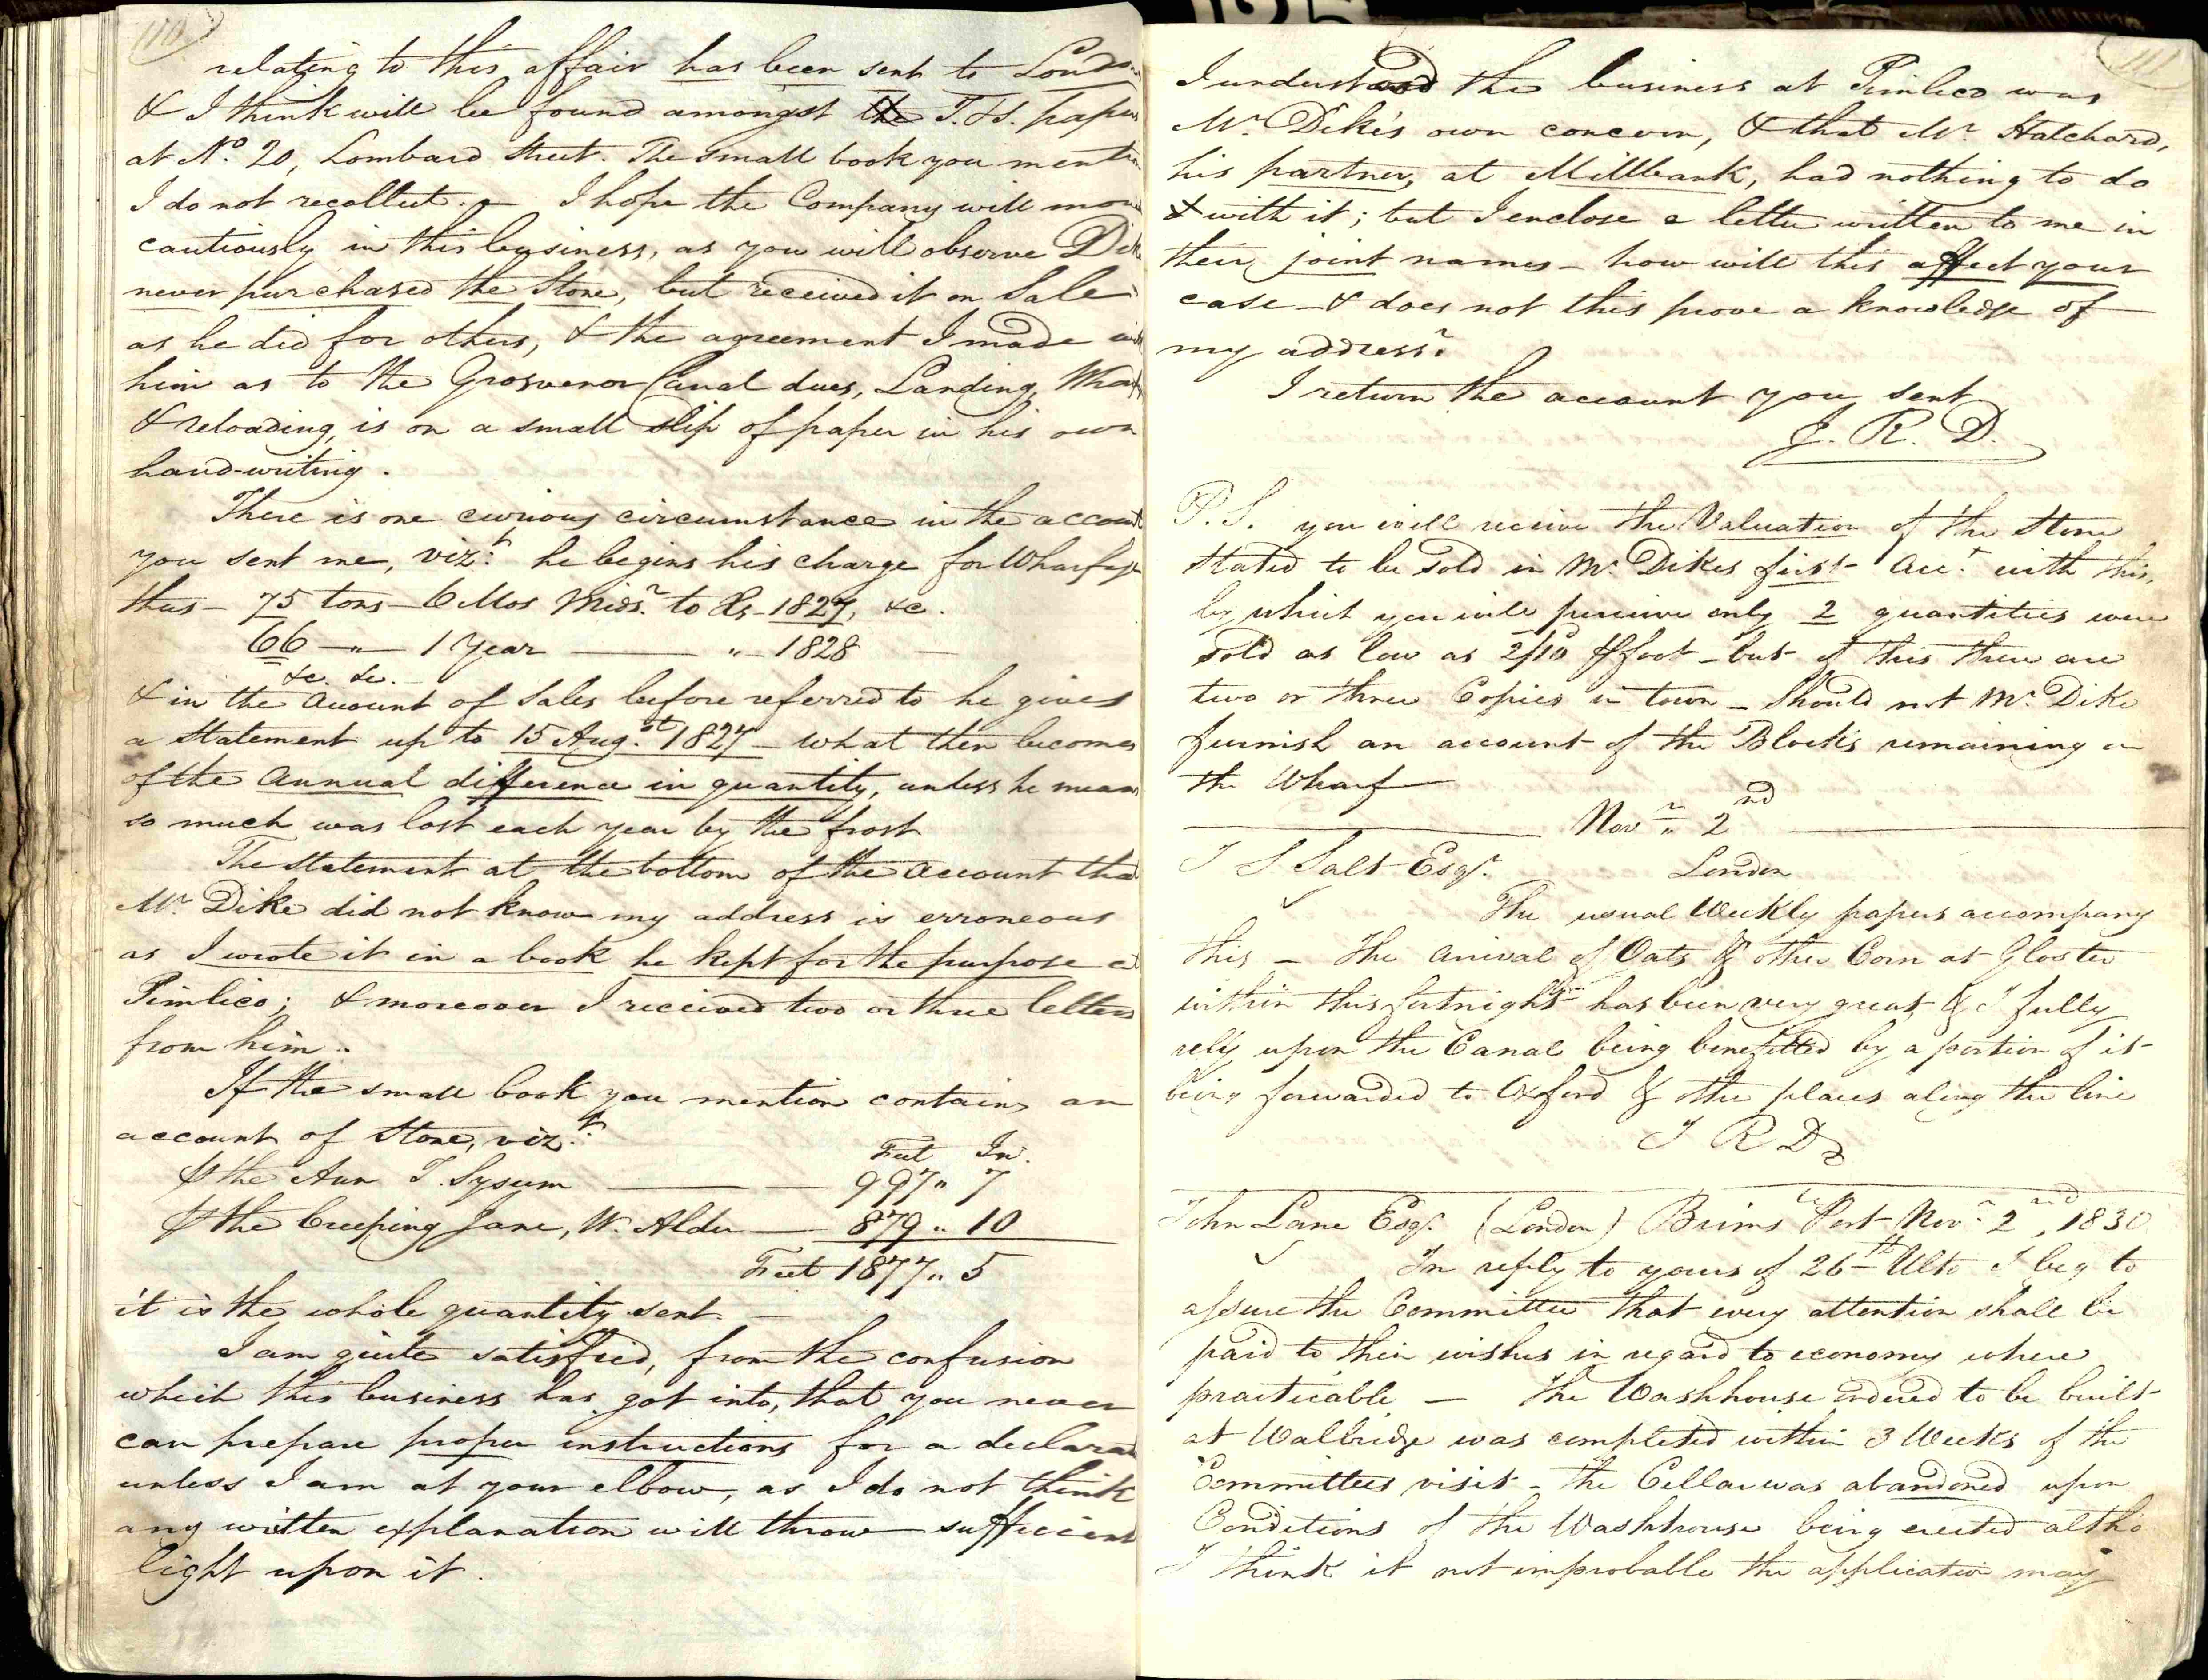 110
relating to this affair has been sent to London
& I think will be found amongst the T. & S. papers
at No. 20, Lombard Street. The small book you mention
I do not recollect. – I hope the Company will move
cautiously in this business, as you will observe Dike
never purchased the Stone, but received it on Sale
as he did for others, & the agreement I made with
him as to the Grosvenor Canal dues, Landing, Wharf
& reloading, is on a small slip of paper in his own
hand-writing.
There is one curious circumstance in the account
you sent me, vizt. he begins his charge for Wharfage
thus – 75 tons – 6 Mos Midsr. to Xs – 1827, &c.
66 – " – 1 Year — " – 1828 –
&c. &c.
& in the Account of Sales before referred to he gives
a Statement up to 15 Augst. 1827 – what then becomes
of the Annual difference in quantity, unless he means
so much was lost each year by the frost
The statement at the bottom of the Account that
Mr. Dike did not know my address is erroneous
as I wrote it in a book he kept for the purpose at
Pimlico; & moreover I received two or three letters
from him.
If the small book you mention contains an
account of Stone, vizt:
Feet In.
⅌ the Ann T. Sysum — 997 " 7
⅌ the Creeping Jane, W. Alder — 879 " 10
Feet 1877 " 5
it is the whole quantity sent. –
I am quite satisfied, from the confusion
which this business has got into, that you never
can prepare proper instructions for a declaration
unless I am at your elbow, as I do not think
any written explanation will throw sufficient
light upon it.
111
I understood the business at Pimlico was
Mr. Dike's own concern, & that Mr. Hatchard,
his partner, at Millbank, had nothing to do
& with it; but I enclose a letter written to me in
their joint names – how will this affect your
case – & does not this prove a knowledge of
my address?
I return the account you sent
J. R. D.
P.S. you will receive the Valuation of the Stone
stated to be sold in Mr. Dikes first Acct. with this,
by which you will perceive only 2 quantities were
sold as low as 2/10 ⅌ foot – but of this there are
two or three Copies in town – Should not Mr. Dike
furnish an account of the Blocks remaining on
the Wharf
Novr. 2nd
T S Salt Esqr. London
The usual Weekly papers accompany
this – The arrival of Oats & other Corn at Gloster
within this fortnight has been very great & I fully
rely upon the Canal being benefitted by a portion of it
being forwarded to Oxford & other places along the line
J R D
John Lane Esqr. (London) Brimsce Port Novr. 2nd, 1830
In reply to yours of 26th Ulto I beg to
assure the Committee that every attention shall be
paid to their wishes in regard to economy where
practicable – The Washhouse ordered to be built
at Wallbridge was completed within 3 Weeks of the
Committees visit – the Cellar was abandoned upon
Conditions of the Washhouse being erected altho
I think it not improbable the application may